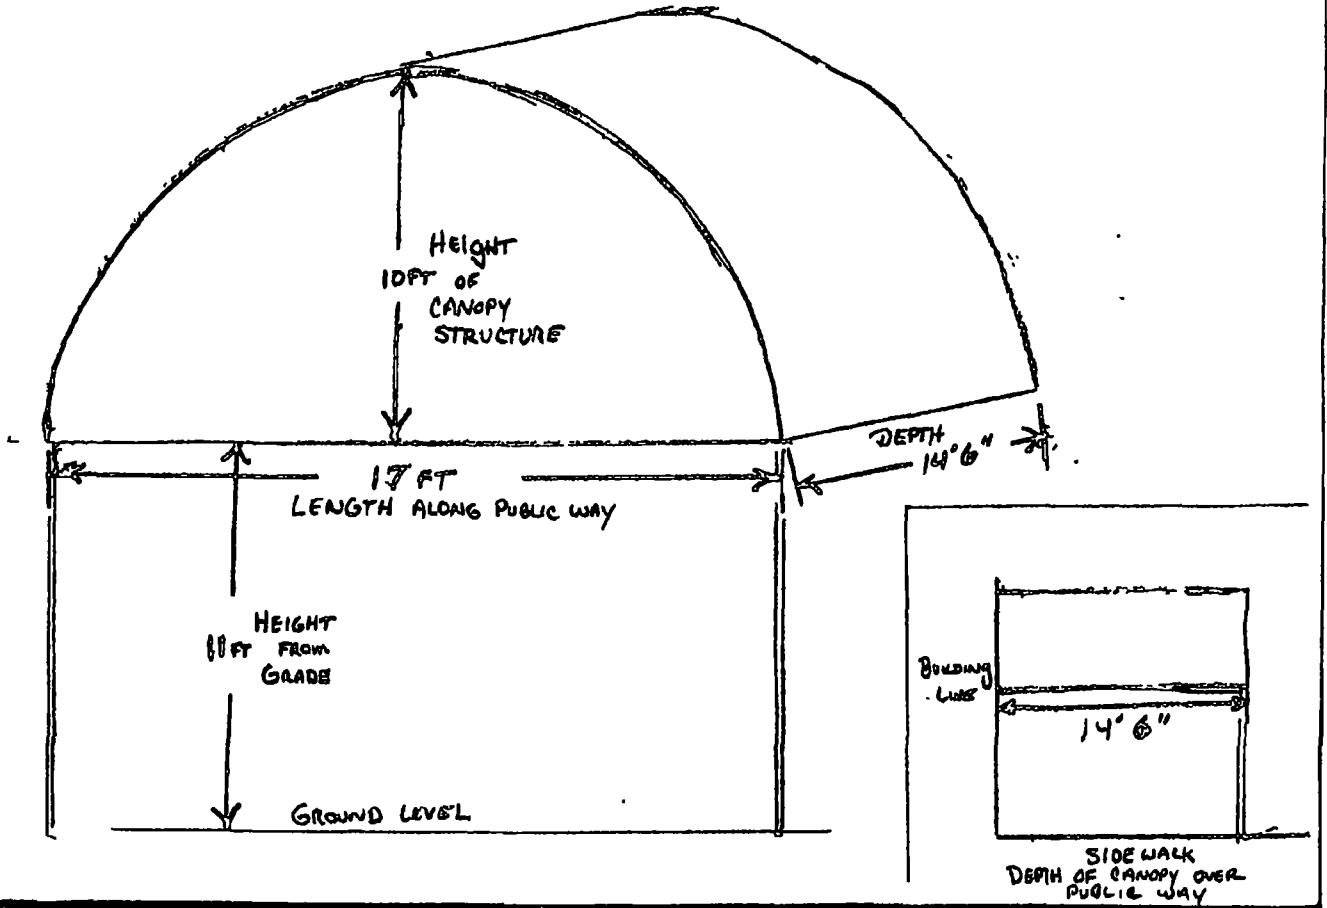 HEIGHT
10FT OF
CANOPY
STRUCTURE
DEPTH
14'6"
17 FT
LENGTH ALONG PUBLIC WAY
HEIGHT
11FT FROM
GRADE
GROUND LEVEL
BUILDING
LINE
14' 6"
SIDEWALK
DEPTH OF CANOPY OVER
PUBLIC WAY